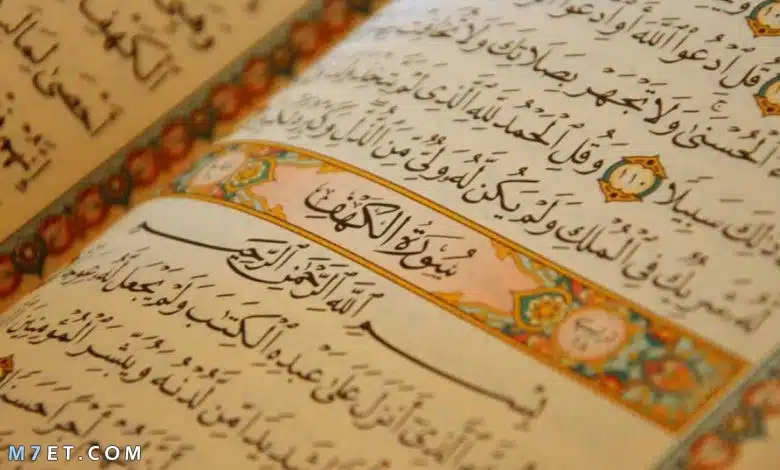 ٱلْكَهْفِ
أَحْصَىٰ لِمَا
قُلِ ٱدْعُوا۟ ٱللَّهَ أَوِ ٱدْعُوا۟
ٱلْحُسْنَىٰ وَلَا تَجْهَرْ بِصَلَاتِكَ وَلَا تُخَافِتْ
ذَٰلِكَ سَبِيلًا ١١٠ وَقُلِ ٱلْحَمْدُ لِلَّهِ ٱلَّذِى لَمْ يَتَّخِذْ
لَّهُۥ شَرِيكٌ فِى ٱلْمُلْكِ وَلَمْ يَكُن لَّهُۥ وَلِىٌّ مِّنَ ٱلذُّلِّ وَكَبِّرْهُ
سُورَةُ ٱلْكَهْفِ
بِسْمِ ٱللَّهِ ٱلرَّحْمَٰنِ ٱلرَّحِيمِ
ٱلَّذِىٓ أَنزَلَ عَلَىٰ عَبْدِهِ ٱلْكِتَٰبَ وَلَمْ يَجْعَل لَّهُۥ عِوَجَا
شَدِيدًا مِّن لَّدُنْهُ وَيُبَشِّرَ ٱلْمُؤْمِنِينَ
أَجْرًا حَسَنًا
M7ET.COM